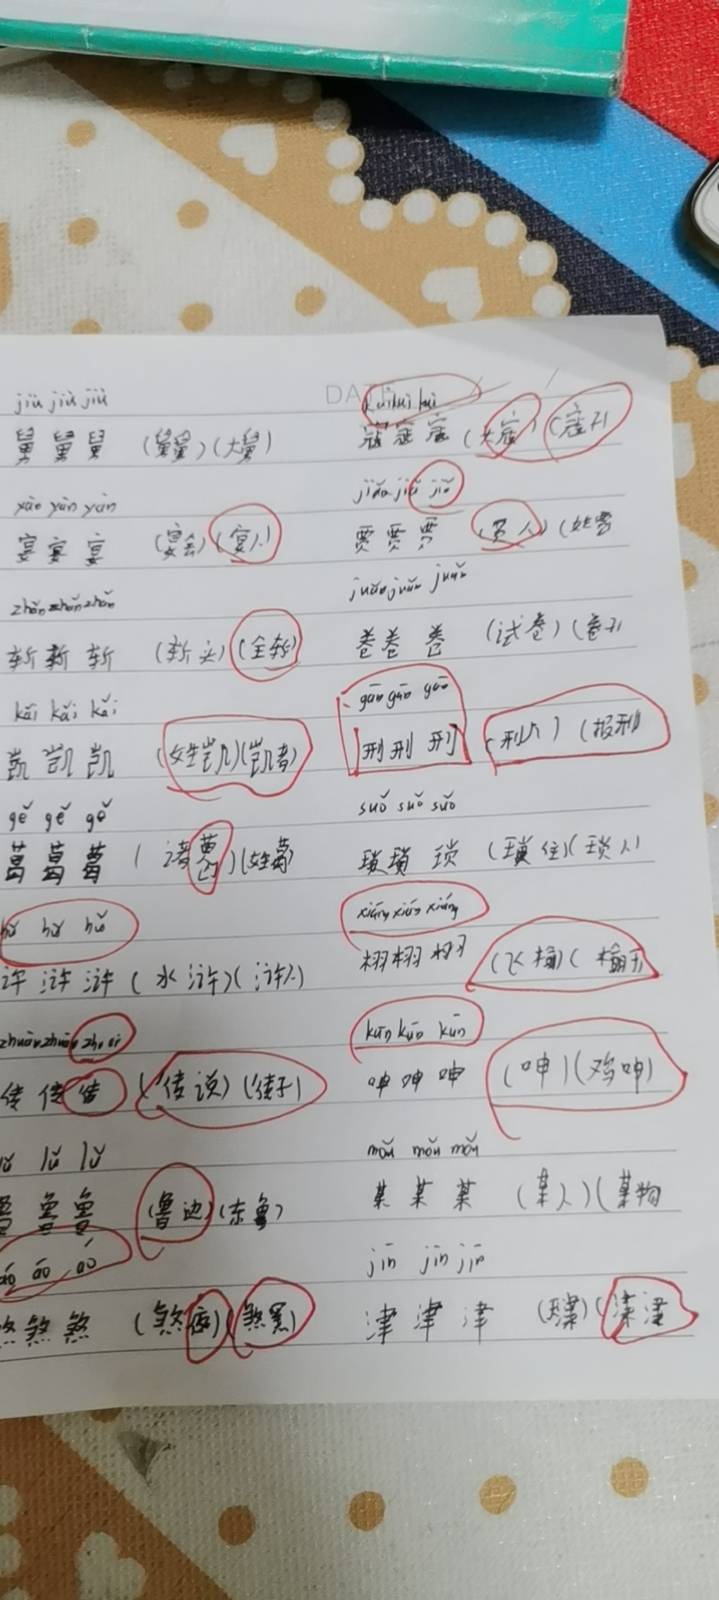 DATE
jiù jiù jiù
舅 舅 舅 (舅舅) (大舅)
寇 寇 寇 (大寇) (寇
yàn yàn yàn
jiǎ jiǎ jiǎ
宴 宴 宴 (宴会) (宴人)
贾 贾 贾 (贾人) (姓贾
zhǎn zhǎn zhǎn
juǎn juǎn juǎn
斩 斩 斩 (斩头) (全斩)
卷 卷 卷 (试卷) (卷
kǎi kǎi kǎi
gāo gāo gāo
凯 凯 凯 (姓凯) (凯者)
刑 刑 刑 (刑) (报刑)
gě gě gě
suǒ suǒ suǒ
葛 葛 葛 (诸葛) (姓葛)
琐 琐 琐 (琐住) (琐人)
hǔ hǔ hǔ
xiáng xiáng xiáng
浒 浒 浒 (水浒) (浒人)
栩 栩 栩 (飞
zhuàn zhuàn
kūn kūn kūn
传 传 传 (传说) (传子)
呻 呻 呻 (呻) (鸡呻)
lǔ lǔ lǔ
mǒu mǒu mǒu
鲁 鲁 鲁 (鲁迅) (东鲁)
某 某 某 (某人) (某物
áo áo áo
jīn jīn jīn
煞 煞 煞 (煞夜) (煞黑)
津 津 津